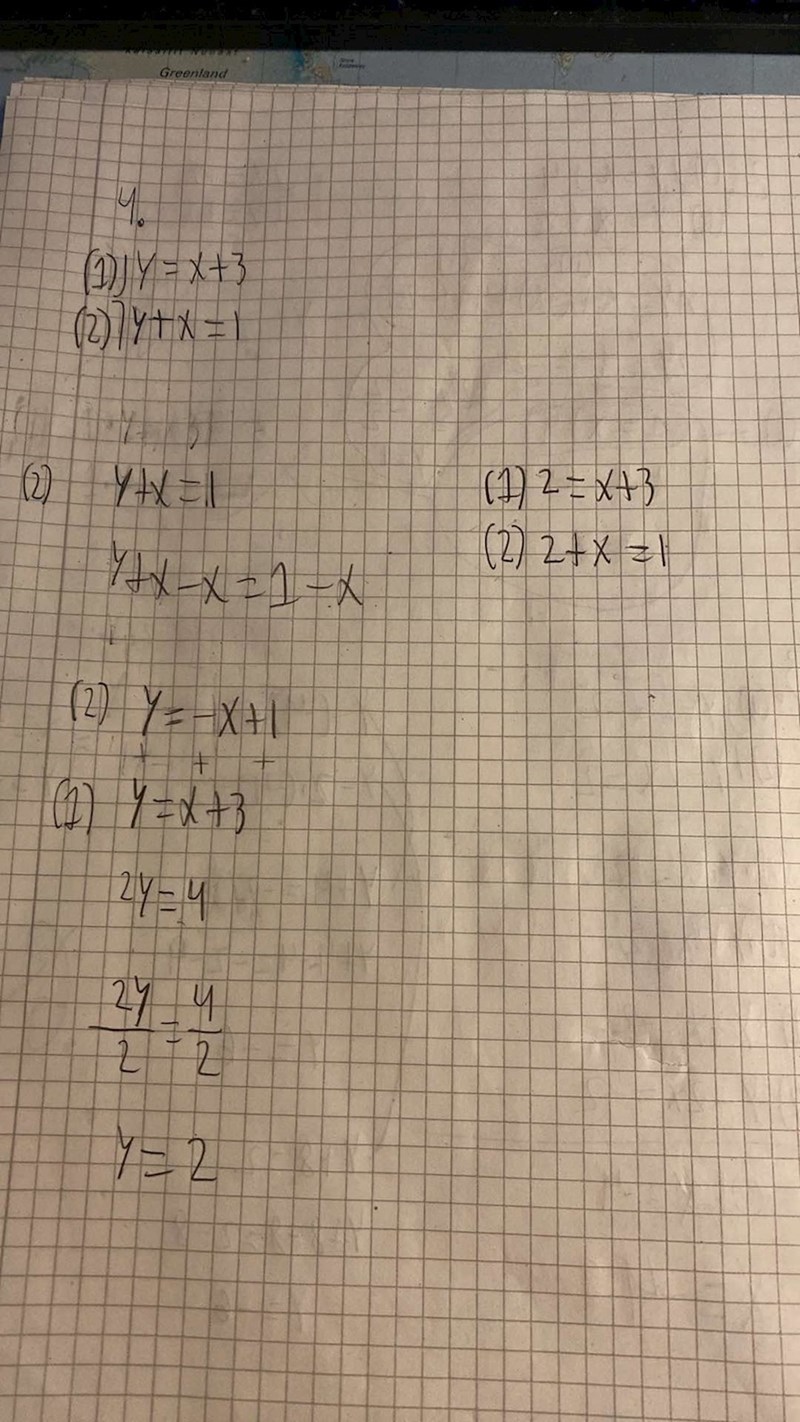 Greenland
4.
(1) y=x+3
(2) y+x=1
(2) y+x=1
y+x-x=1-x
(2) y=-x+1
+ + +
(1) y=x+3
2y=4
2y/2=4/2
y=2
(1) 2=x+3
(2) 2+x=1